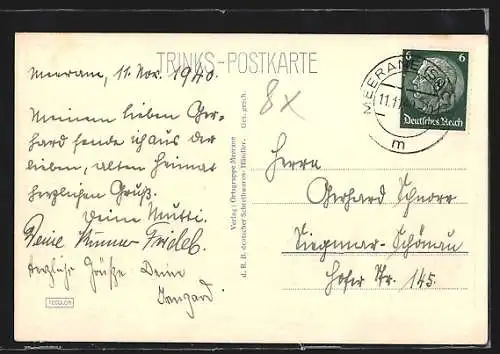 TRINKS-POSTKARTE
Meerane, 11. Nov. 1940.
Meinem lieben Ger-
hard sende ich aus der
lieben, alten Heimat
herzlichen Gruß.
Deine Mutti.
Deine
Herzliche Grüße Deine
Irmgard
8x
Verlag: Ortsgruppe Meerane
d. R. B. deutscher Schreibwaren-Händler. Ges. gesch.
MEERANE (SA)
11.11
m
6 6
Deutsches Reich
Herrn
Gerhard Schnorr
Siegmar-Schönau
Hofer Str. 145.